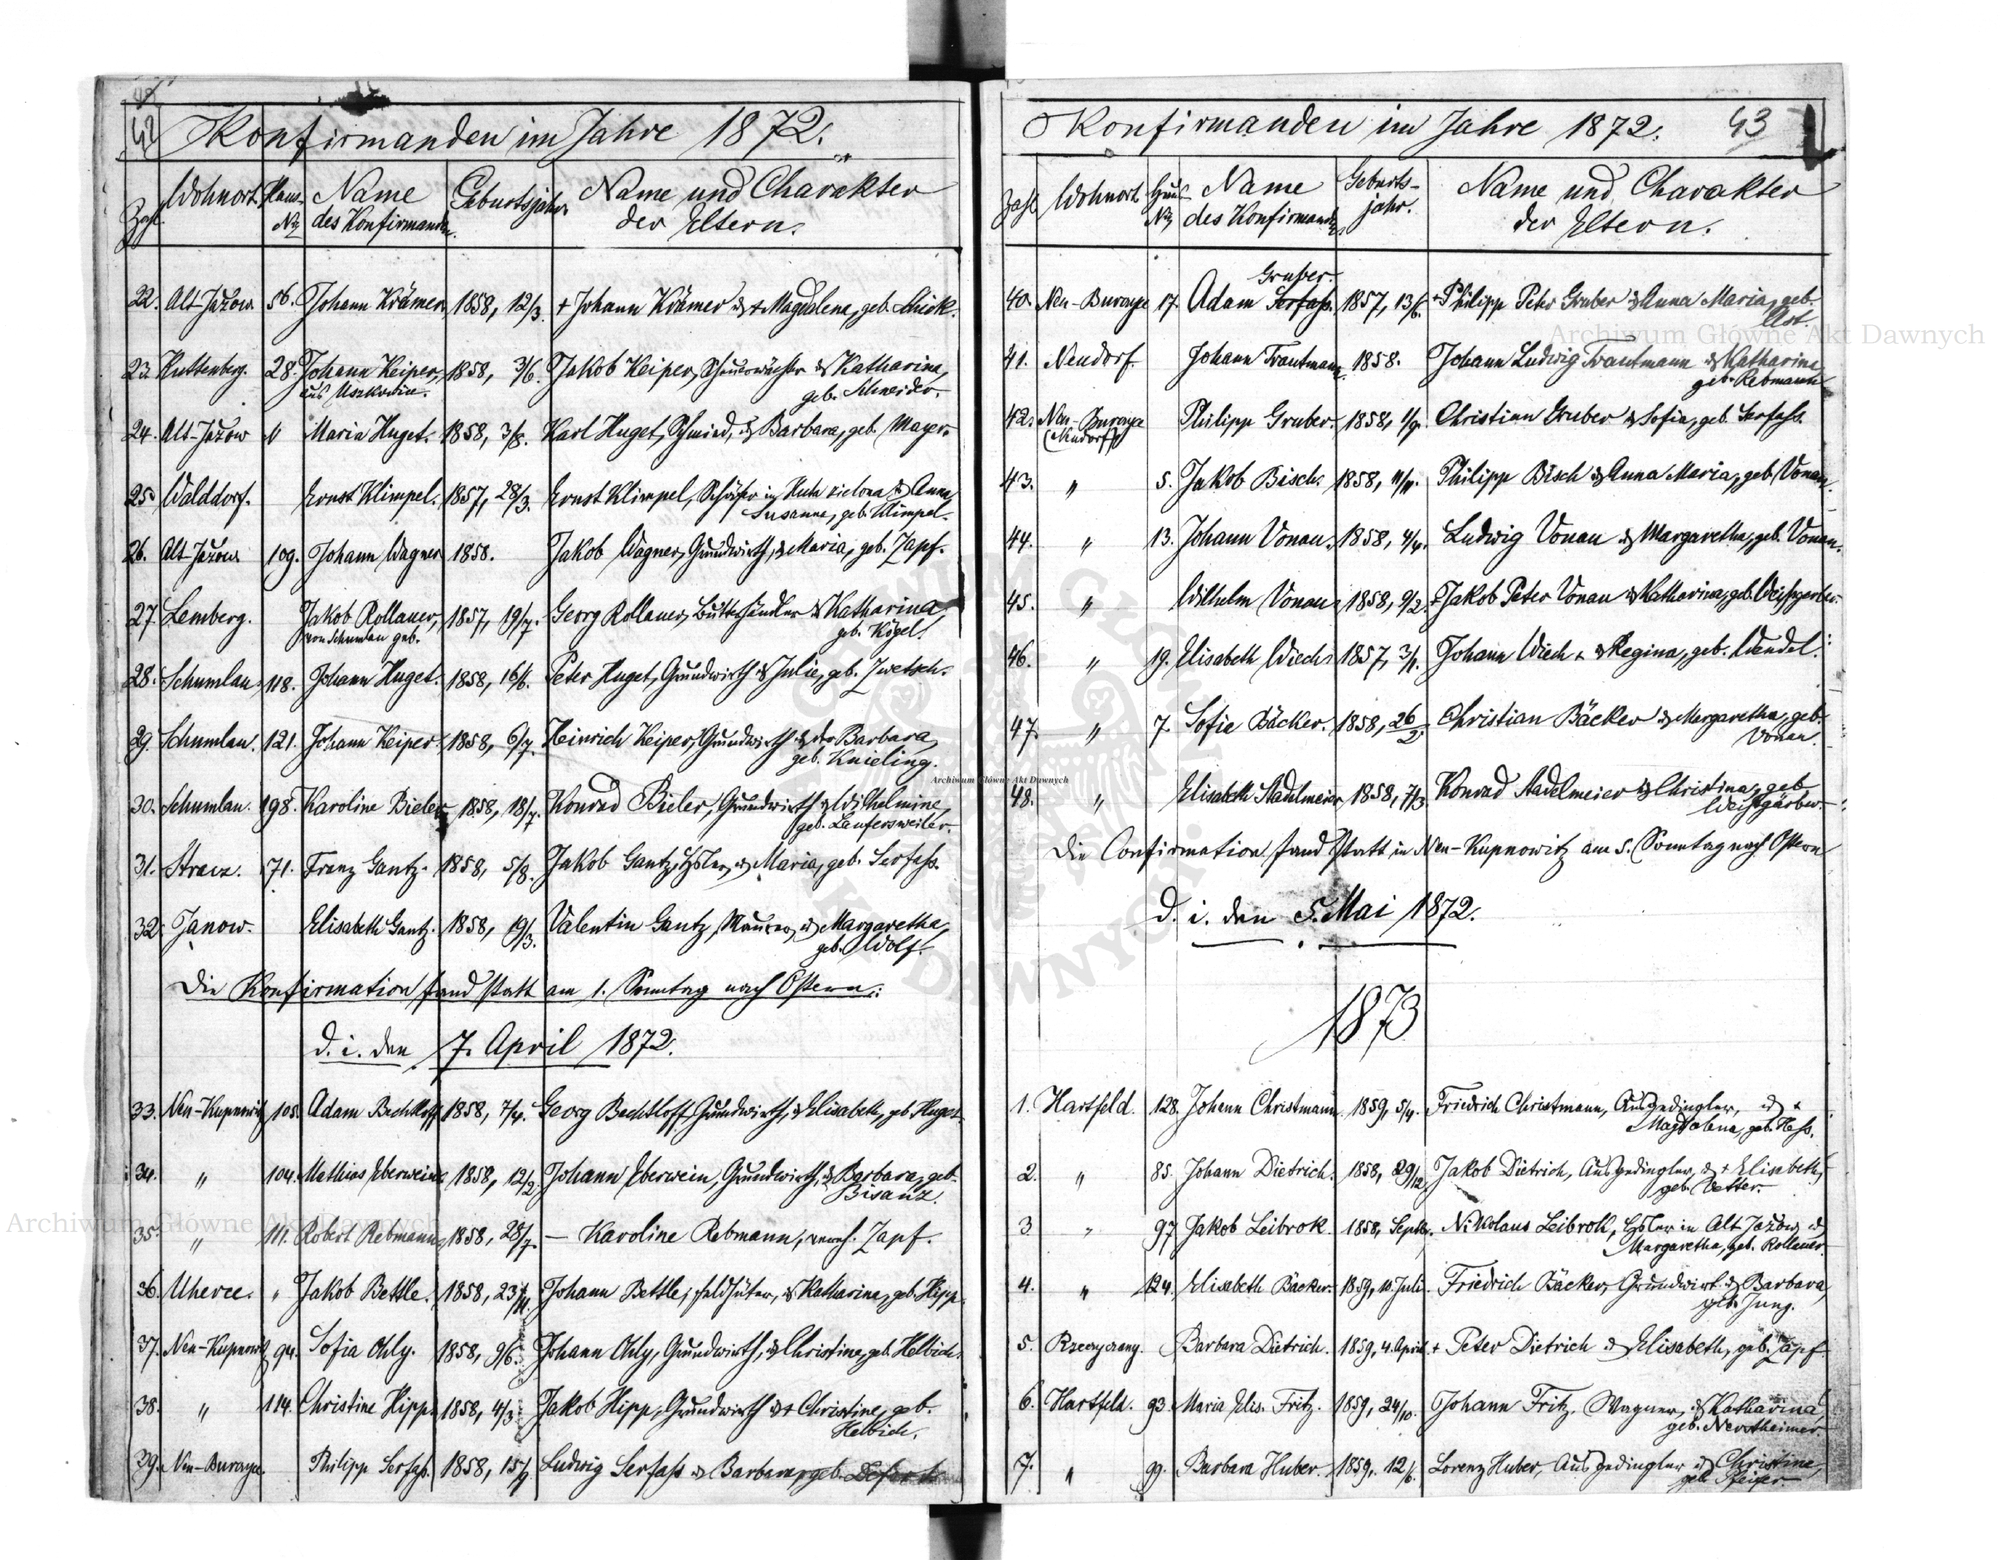 42
Konfirmanden im Jahre 1872.
Zahl Wohnort Haus- Name Geburtsjahr Name und Charakter
No des Konfirmanden. der Eltern.
22. Alt Jazow. 56. Johann Krämer. 1858, 12/3. + Johann Krämer & + Magdalena, geb. Schick.
23. Huttenberg. 28. Johann Keiper, 1858, 3/6. Jakob Keiper, & Katharina,
aus Moszkowice. geb. Schneider.
24. Alt-Jazow Maria Huget. 1858, 3/8. Karl Huget, Schmied, & Barbara, geb. Mayer.
25. Walddorf. Ernst Klimpel. 1857, 28/3. Ernst Klimpel, Schäfer in Huta zielona & Anna
Susanna, geb. Klimpel.
26. Alt Jazow. 109. Johann Wagner 1858. Jakob Wagner, Grundwirth, & Maria, geb. Zapf.
27. Lemberg. Jakob Rollauer, 1857, 19/7. Georg Rollauer, Butterhändler & Katharina
von Schumlau geb. geb. Kögel.
28. Schumlau. 118. Johann Huget. 1858, 16/6. Peter Huget, Grundwirth & Julia, geb. Zwetsch.
29. Schumlau. 121. Johann Keiper. 1858, 6/7. Heinrich Keiper, Grundwirth & der Barbara,
geb. Knieling.
30. Schumlau. 198. Karoline Bieler 1858, 18/7. Konrad Bieler, Grundwirth & Wilhelmine,
geb. Laufersweiler.
31. Stracz. 71. Franz Gantz. 1858, 5/8. Jakob Gantz, Isler, & Maria, geb. Serfass.
32. Janow. Elisabeth Gantz. 1858, 19/3. Valentin Gantz, Maurer, & Margaretha,
geb. Wolf.
Die Konfirmation fand statt am 1. Sonntag nach Ostern:
d. i. den 7. April 1872.
33. Neu-Kupnowitz 105. Adam Bechtloff 1858, 7/4. Georg Bechtloff, Grundwirth, & Elisabeth, geb. Huget.
34. " 104. Mathias Eberwein 1858, 12/2. Johann Eberwein, Grundwirth, & Barbara, geb.
Bisanz.
35. " 111. Robert Rebmann, 1858, 28/7. — Karoline Rebmann, verweh. Zapf.
36. Uherce. " Jakob Bettle. 1858, 23/11. Johann Bettle, Feldhüter, & Katharina, geb. Hipp.
37. Neu-Kupnowitz 94. Sofia Ohly. 1858, 9/6. Johann Ohly, Grundwirth, & Christine, geb. Helbich.
38. " 114. Christine Hipp. 1858, 4/3. Jakob Hipp, Grundwirth & + Christine, geb.
Helbich.
39. Neu-Burczyce. Philipp Serfass. 1858, 15/9 Ludwig Serfass & Barbara, geb.
Konfirmanden im Jahre 1872. 43
Zahl Wohnort Haus Name Geburts- Name und Charakter
No des Konfirmanden jahr. der Eltern.
Gruber
40. Neu-Burczyce 17. Adam Serfass. 1857, 13/6. + Philipp Peter Gruber & Anna Maria, geb.
Ast.
41. Neudorf. Johann Trautmann. 1858. Johann Ludwig Trautmann & Katharina
geb. Rebmann
42. Neu-Burczyce Philipp Gruber. 1858, 1/9. Christian Gruber & Sofia, geb. Serfass.
(Neudorf)
43. " 5. Jakob Bisch. 1858, 11/11. Philipp Bisch & Anna Maria, geb. Vonau.
44. " 13. Johann Vonau. 1858, 4/4. Ludwig Vonau & Margaretha, geb. Vonau.
45. " Wilhelm Vonau. 1858, 9/2. + Jakob Peter Vonau & Katharina, geb. Weissgerber.
46. " 19. Elisabeth Wiech. 1857, 3/1. Johann Wiech + & Regina, geb. Wendel.
47. " 7. Sofie Bäcker. 1858, 26/2. Christian Bäcker & Margaretha, geb.
Vonau.
48. " Elisabeth Stadelmeier 1858, 7/3 Konrad Stadelmeier & Christina, geb.
Weissgärber.
Die Confirmation fand statt in Neu-Kupnowitz am 5. Sonntag nach Ostern
d. i. den 5. Mai 1872.
1873
1. Hartfeld. 128. Johann Christmann. 1859, 5/4. Friedrich Christmann, Ausgedingler, & +
Magdalena, geb. Hass.
2. " 85. Johann Dietrich. 1858, 29/12. Jakob Dietrich, Ausgedingler, & + Elisabeth,
geb. Vetter.
3 " 97 Jakob Leibrok. 1858, Septbr. Nikolaus Leibrok, Isler in Alt Jazow &
Margaretha, geb. Rollauer.
4. " 124. Elisabeth Bäcker. 1859, 10. Juli. Friedrich Bäcker, Grundwirt & Barbara,
geb. Jung.
5. Rzeczyczany. Barbara Dietrich. 1859, 4. April. + Peter Dietrich & Elisabeth, geb. Zapf.
6. Hartfeld. 93. Maria Elis. Fritz. 1859, 24/10. Johann Fritz, Wagner, & Katharina,
geb. Nerstheimer.
7. " 99. Barbara Huber. 1859. 12/6. Lorenz Huber, Ausgedingler & Christine,
geb. Pfeifer.
Archiwum Główne Akt Dawnych
Archiwum Główne Akt Dawnych
Archiwum Główne Akt Dawnych
ARCHIWUM GŁÓWNE AKT DAWNYCH